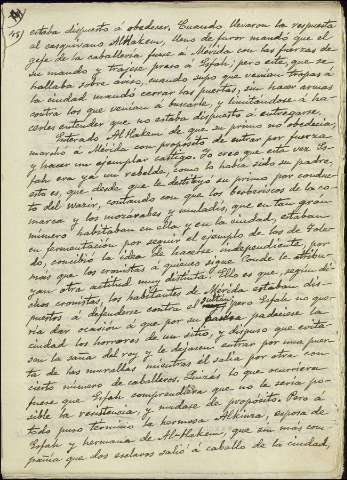 151
estaba dispuesto a obedecer. Cuando llevaron la respuesta
al casquivano Alhakem, lleno de furor mandó que el
gefe de la caballeria fuese á Mérida con las fuerzas de
su mando y trajese preso á Esfah; pero este, que se
hallaba sobre aviso, cuando supo que venian tropas á
la ciudad mandó cerrar las puertas, sin hacer armas
contra los que venian á buscarle, y limitandose á ha-
cerles entender que no estaba dispuesto á entregarse.
Enterado Al Hakem de que su primo no obedecia,
marchó á Mérida con propósito de entrar por fuerza
y hacer un ejemplar castigo. Yo creo que esta vez Es-
fah era ya un rebelde, como lo habia sido su padre,
esto es, que desde que le destituyó su primo por conduc-
to del Wazir, contando con que los berberiscos de la co-
marca y los mozárabes y muladis, que en tan gran
número habitaban en ella y en la ciudad, estaban
en fermentación por seguir el ejemplo de los de Tole-
do, concibió la idea de hacerse independiente, por
más que los cronistas á quienes sigue Conde le atribu-
yan otra actitud muy distinta. Ello es que, segun di-
chos cronistas, los habitantes de Mérida estaban dis-
puestos á defenderse contra el pero Esfah no que-
ria dar ocasión á que por su padeciese la
ciudad los horrores de un sitio, y dispuso que evita-
sen la saña del rey y le dejasen entrar por una puer-
ta de las murallas mientras él salia por otra con
cierto número de caballeros. Quizás lo que ocurriera
fuese que Esfah comprendiera que no le seria po-
sible la resistencia, y mudase de propósito. Pero á
todo puso término la hermosa Alkinza, esposa de
Esfah y hermana de Al-Hakem, que sin más com-
pañia que dos esclavos salió á caballo de la ciudad,